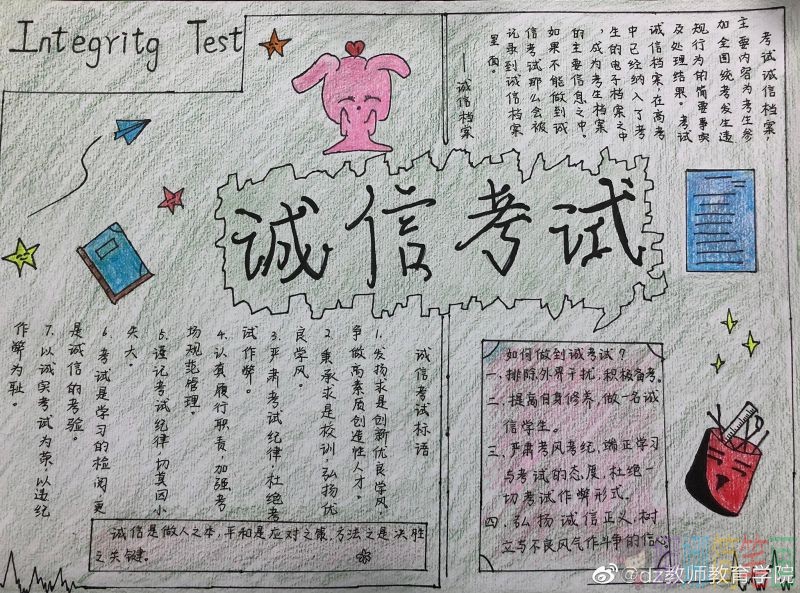 Integritg Test
考试诚信档案，
主要内容为考生参
加全国统考发生违
规行为的简要事实
及处理结果。考试
诚信档案，在高考
中已经纳入了考
生的电子档案之中
，成为考生档案
的主要信息之中。
如果不能做到诚
信考试那么会被
记录到诚信档案
里面。
——诚信档案
诚信考试
诚信考试标语
1.发扬求是创新优良学风，
争做高素质创造性人才。
2.秉承求是校训，弘扬优
良学风。
3.严肃考试纪律，杜绝考
试作弊。
4.认真履行职责，加强考
场规范管理。
5.谨记考试纪律，切莫因小
失大。
6.考试是学习的检阅，更
是诚信的考验。
7.以诚实考试为荣，以违纪
作弊为耻。
诚信是做人之本，平和是应对之策，方法之是决胜
之关键。
如何做到诚考试？
一、排除外界干扰，积极备考。
二、提高自身修养，做一名诚
信学生。
三、严肃考风考纪，端正学习
与考试的态度，杜绝一
切考试作弊形式。
四、弘扬诚信正义，树
立与不良风气作斗争的信心
@dz教师教育学院